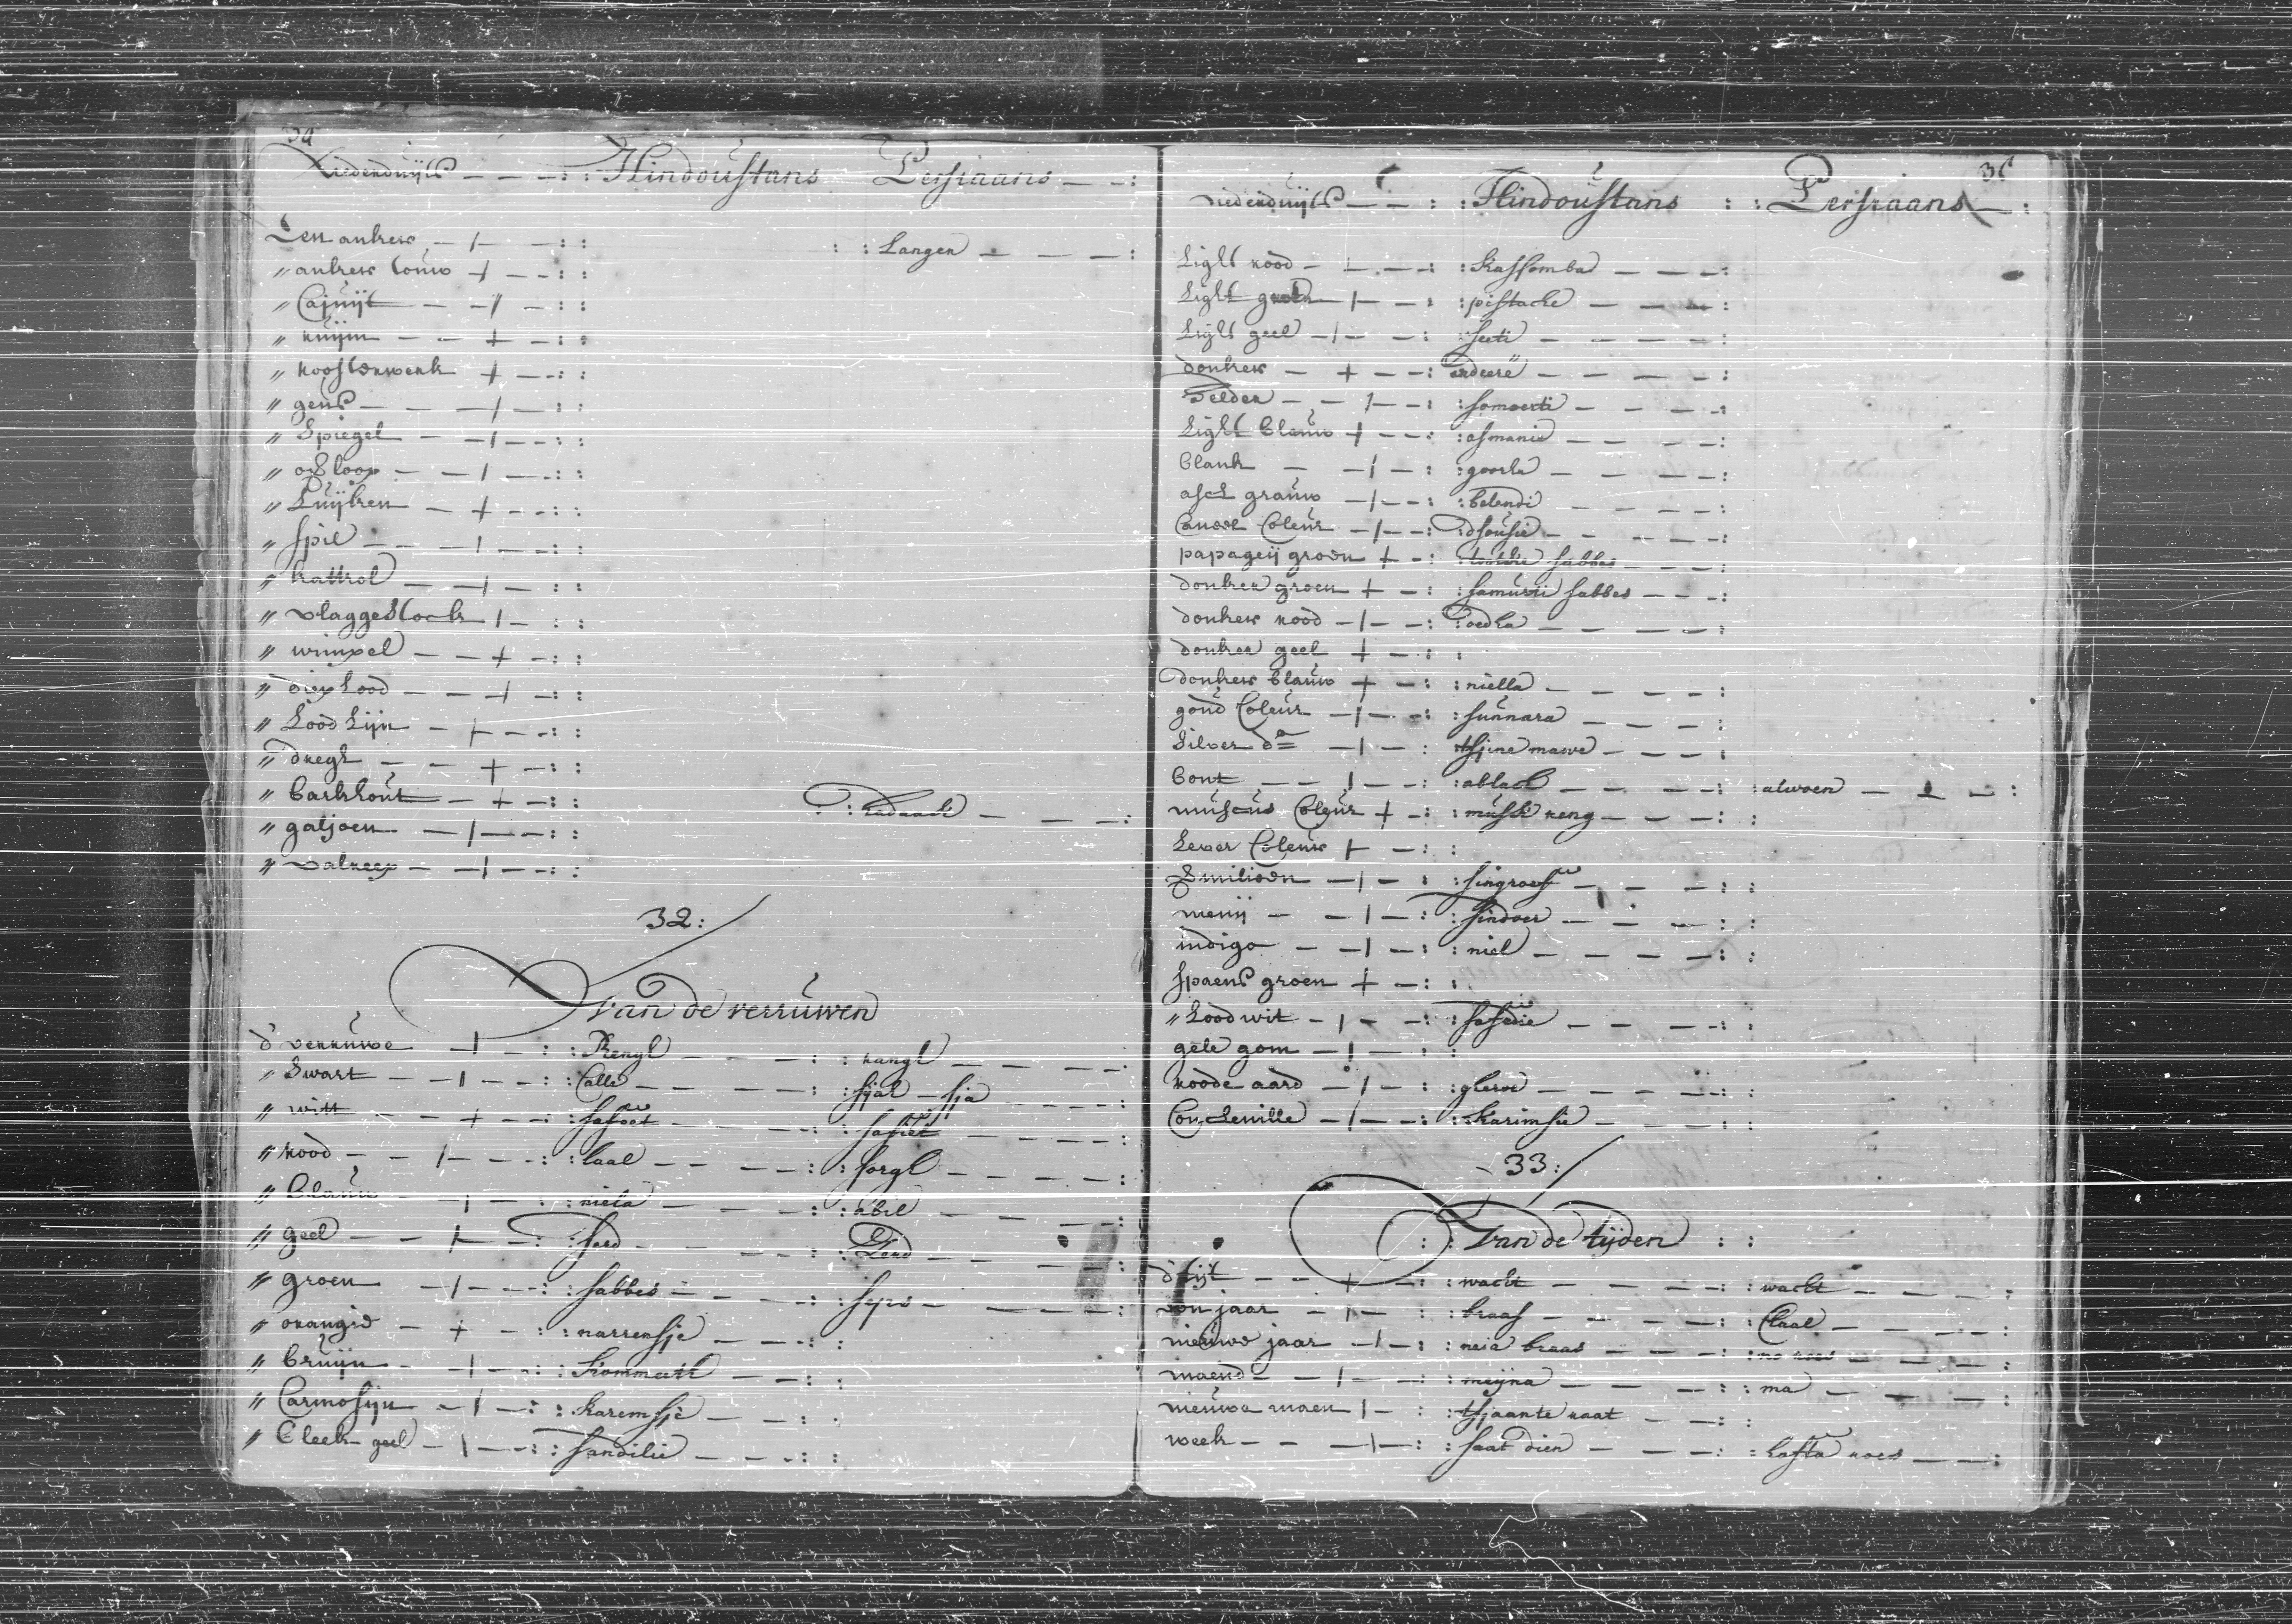 34
Nederduijts Hindoustans Persiaans
Een anker : Langer
" anker touw
" Cajuijt
" ruijm
" roosterwerk
" gens
" Spiegel
" oploop
" Luijken
" spil
" kattrol
" vlaggestock
" wimpel
" diep Lood
" Lood Lijn
" dregh
" barkhout
" galjoen
" valreep
32:
Van de verruwen
d' verruwe : Rengh : rangh
" Swart : Calle : sjah - sja
" witt : saffoet : saffiet
" rood : laal : sorgh
" blauw : niela : abil
" geel : sard : Zerd
" groen : sabbes : seps
" orangie : narrensje
" bruijn : Kommeith
" Carmosijn : Karemsje
" bleek geel : sandilie
35
Nederduijts : Hindoustans : Persiaans
Light rood : Kassomba
Light groen : pistache
Light geel : seeti
donker : erdeere
Selder : somoerti
Light blauw : asmanie
blank : goora
asch grauw : belendi
Caneel Coleur : dsousie
papageij groen : toethie sabbes
donker groen : samurii sabbes
donker rood : oedha
donker geel
donker blauw : niella
goud Coleur : sunnara
Silver do : tsjinemawe
bont : ablach : alwoen
muscus Coleur : mussk reng
Lever Coleur
Smilioen : singroeff
menij : sindoer
indigo : niel
spaens groen
" Lood wit : safedie
gele gom
roode aard : gheroe
Conchenille : Karimsie
33:
Van de tijden
d' tijt : wacht : wacht
een jaar : braas : Chaal
nieuwe jaar : neia braas : no roes
maend : meijna : ma
nieuwe maen : tsjaante raat
week : saat dien : hafta roes